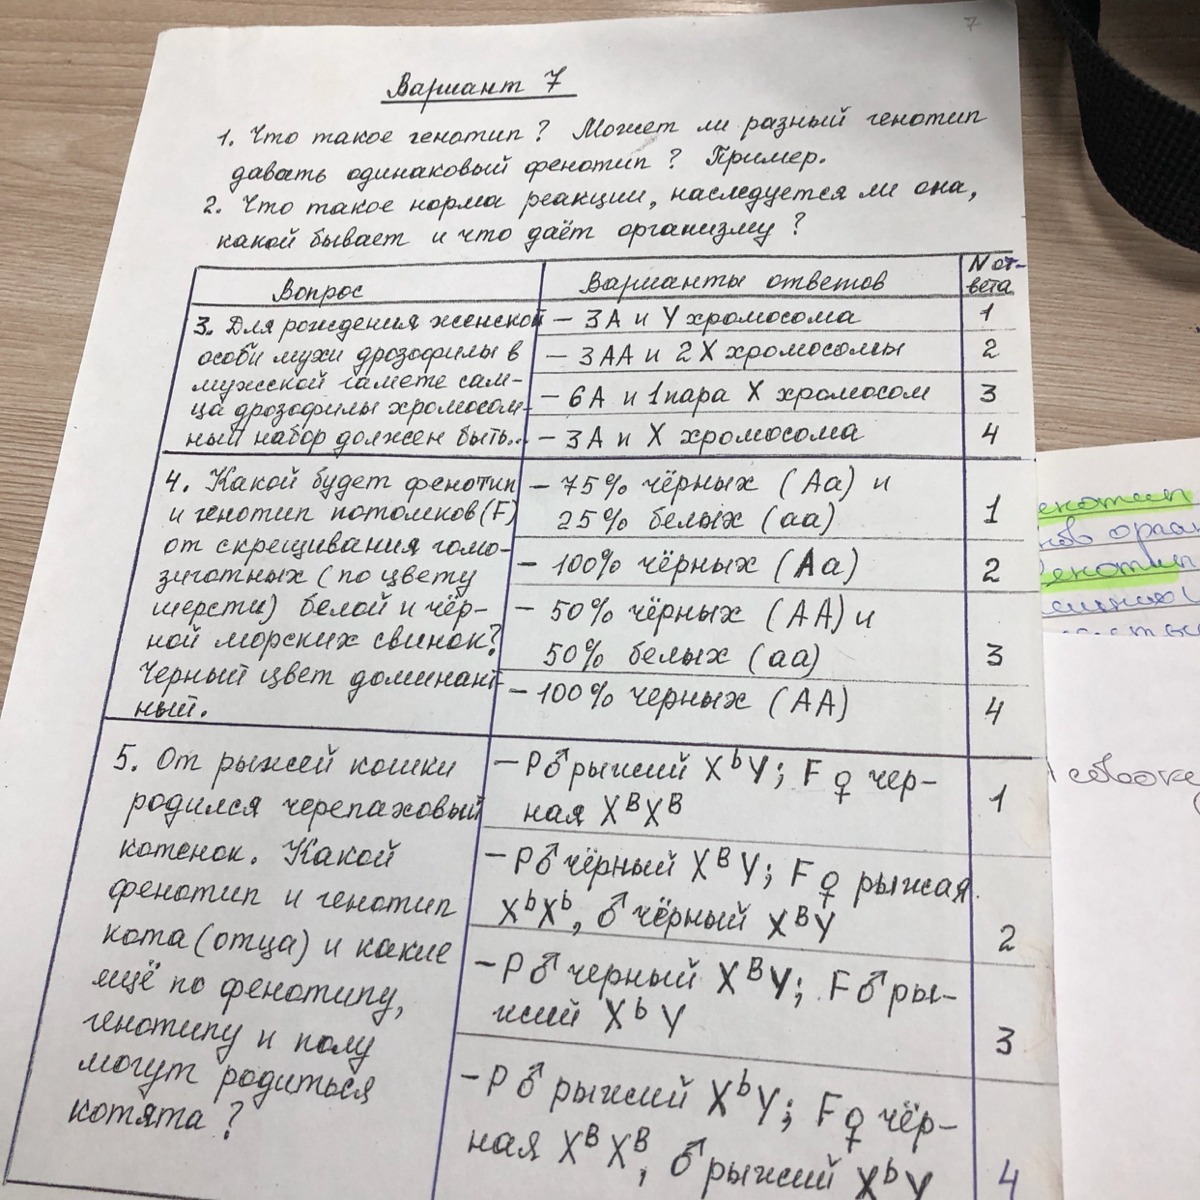 7
Вариант 7
1. Что такое генотип? Может ли разный генотип
давать одинаковый фенотип? Пример.
2. Что такое норма реакции, наследуется ли она,
какой бывает и что даёт организму?
Вопрос
Варианты ответов
N от-
вета
3. Для рождения женской
особи мухи дрозофилы в
мужской гамете сам-
ца дрозофилы хромосом-
ный набор должен быть...
– 3А и У хромосома
1
– 3АА и 2Х хромосомы
2
– 6А и 1пара Х хромосом
3
– 3А и Х хромосома
4
4. Какой будет фенотип
и генотип потомков(F)
от скрещивания гомо-
зиготных (по цвету
шерсти) белой и чёр-
ной морских свинок?
Черный цвет доминант-
ный.
– 75% чёрных (Аа) и
25% белых (аа)
1
– 100% чёрных (Аа)
2
– 50% чёрных (АА) и
50% белых (аа)
3
– 100% черных (АА)
4
5. От рыжей кошки
родился черепаховый
котенок. Какой
фенотип и генотип
кота (отца) и какие
ещё по фенотипу,
генотипу и полу
могут родиться
котята?
– Р♂рыжий XᵇY; F♀ чер-
ная XᴮXᴮ
1
– Р♂чёрный XᴮY; F♀ рыжая
XᵇXᵇ, ♂чёрный XᴮY
2
– Р♂черный XᴮY; F♂ры-
жий XᵇY
3
– Р♂рыжий XᵇY; F♀чёр-
ная XᴮXᴮ, ♂рыжий XᵇY
4